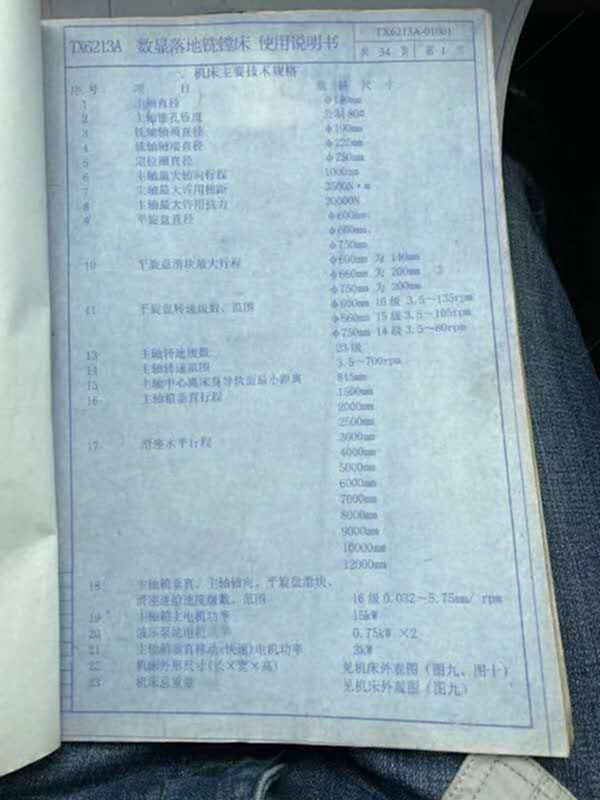 TX6213A 数显落地铣镗床 使用说明书
TX6213A-01001
共 34 页 第 1 页
一、机床主要技术规格
序号 项 目 规 格 尺 寸
1 主轴直径 φ130mm
2 主轴锥孔锥度 公制 80#
3 铣轴轴颈直径 φ190mm
4 铣轴轴端直径 φ225mm
5 直径 φ250mm
6 主轴最大轴向行程 1000mm
7 主轴最大许用扭距 3500N·m
8 主轴最大许用抗力 30000N
9 平旋盘直径 φ600mm
φ660mm
φ750mm
10 平旋盘滑块最大行程 φ600mm 为 140mm
φ660mm 为 200mm
φ750mm 为 200mm
11 平旋盘转速级数、范围 φ600mm 16 级 3.5～135rpm
φ660mm 15 级 3.5～105rpm
φ750mm 14 级 3.5～80rpm
13 主轴转速级数 23 级
14 主轴转速范围 3.5～700rpm
15 主轴中心离床身导轨面最小距离 845mm
16 主轴箱垂直行程 1500mm
2000mm
2500mm
17 滑座水平行程 3000mm
4000mm
5000mm
6000mm
7000mm
8000mm
9000mm
10000mm
12000mm
18 主轴箱垂直、主轴轴向、平旋盘滑块、
滑座进给速度级数、范围 16 级 0.032～5.75mm/ rpm
19 主轴箱主电机功率 15kW
20 液压泵站电机功率 0.75kW ×2
21 主轴箱垂直移动(快速)电机功率 3kW
22 机床外形尺寸(长×宽×高) 见机床外观图 (图九、图十)
23 机床总重量 见机床外观图 (图九)